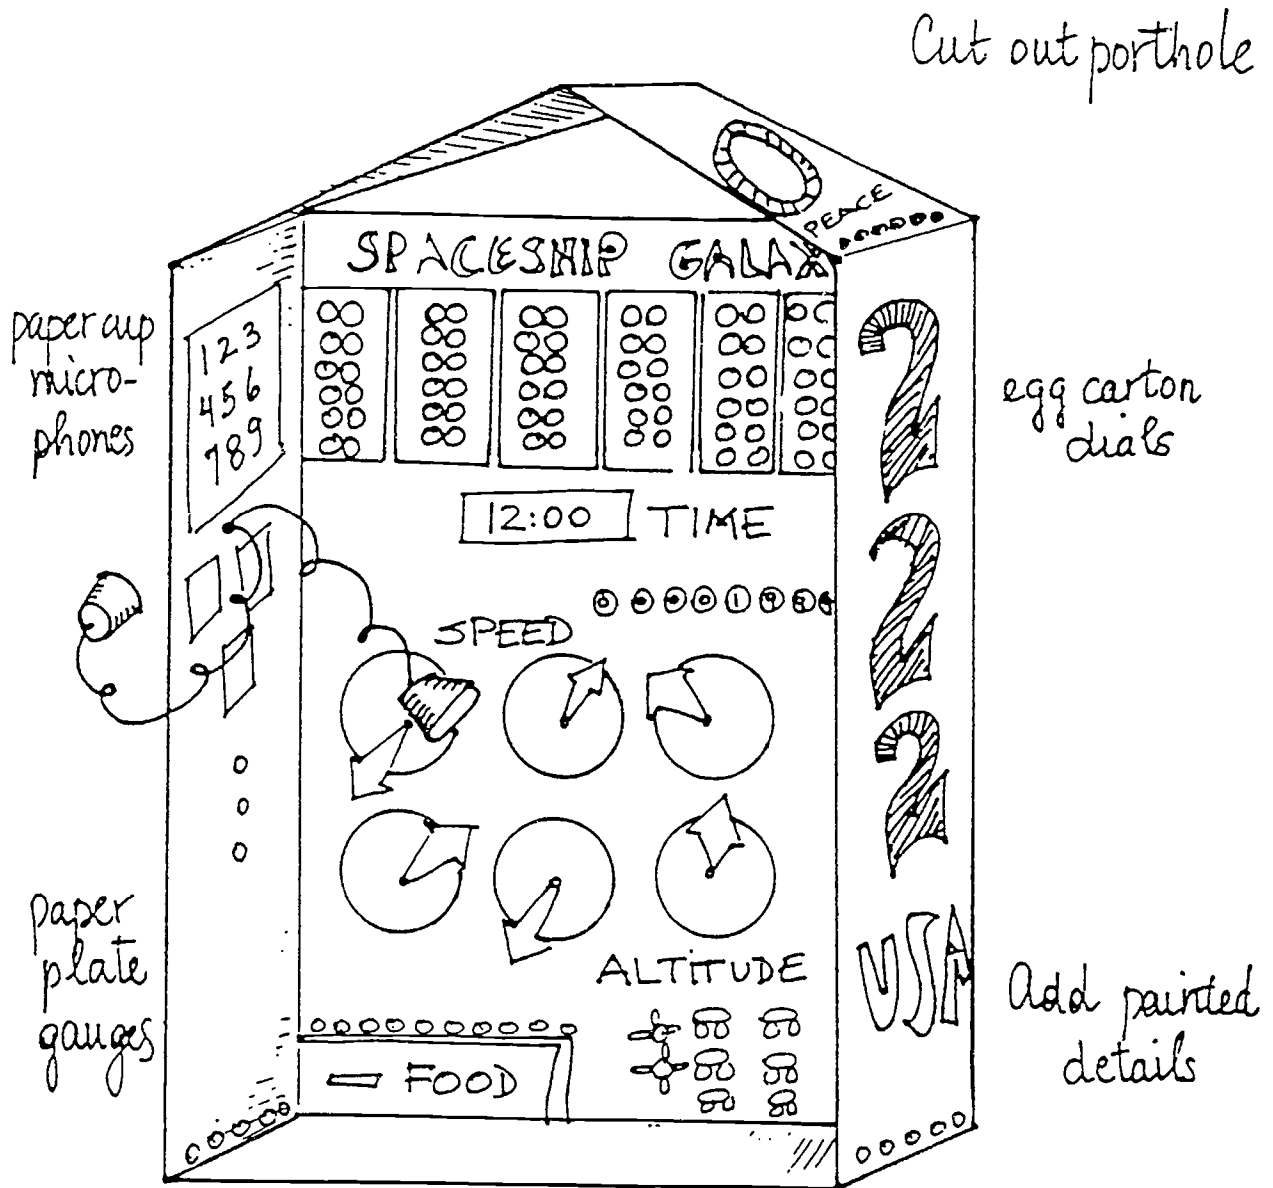 Cut out porthole
PEACE
SPACESHIP GALAX
paper cup
micro-
phones
1 2 3
4 5 6
7 8 9
egg carton
dials
12:00 TIME
SPEED
2
2
2
USA
paper
plate
gauges
ALTITUDE
Add painted
details
FOOD